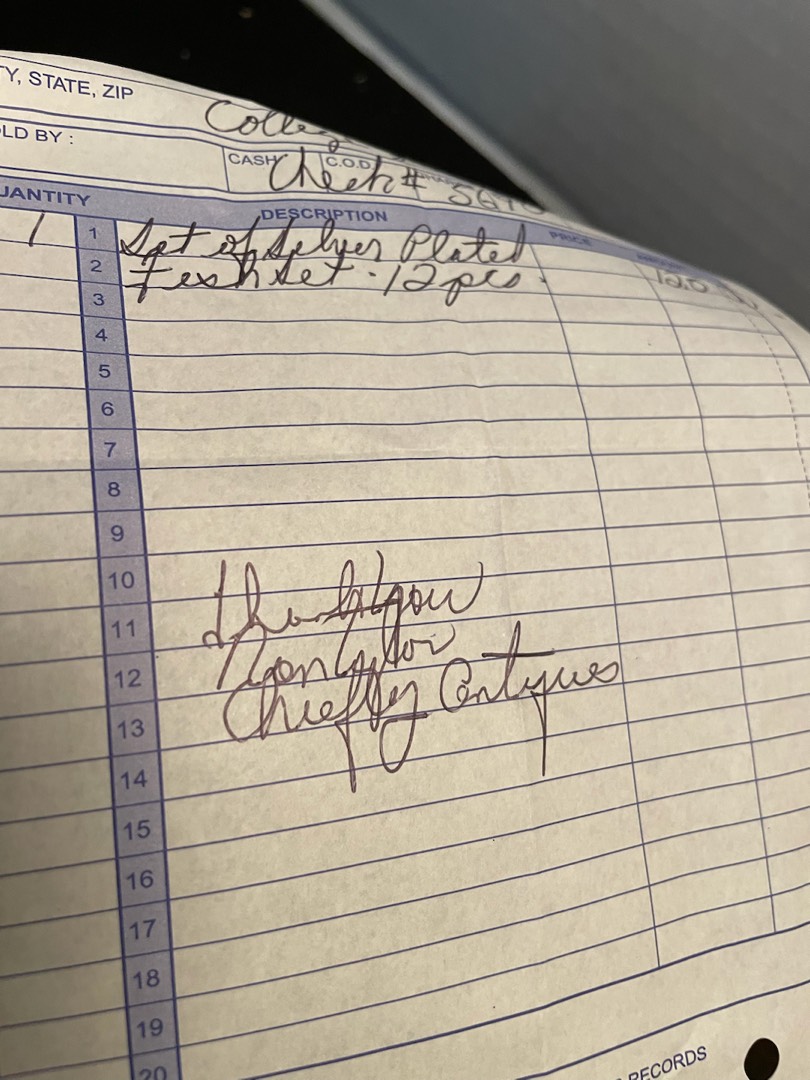 TY, STATE, ZIP
LD BY :
CASH C.O.D.
Check #
UANTITY DESCRIPTION PRICE
1 1 Set of Silver Plated
2 Fish Set . 12 pcs .
3
4
5
6
7
8
9
10 Thank you
11
12
13 Chiefly Antiques
14
15
16
17
18
19
20
RECORDS